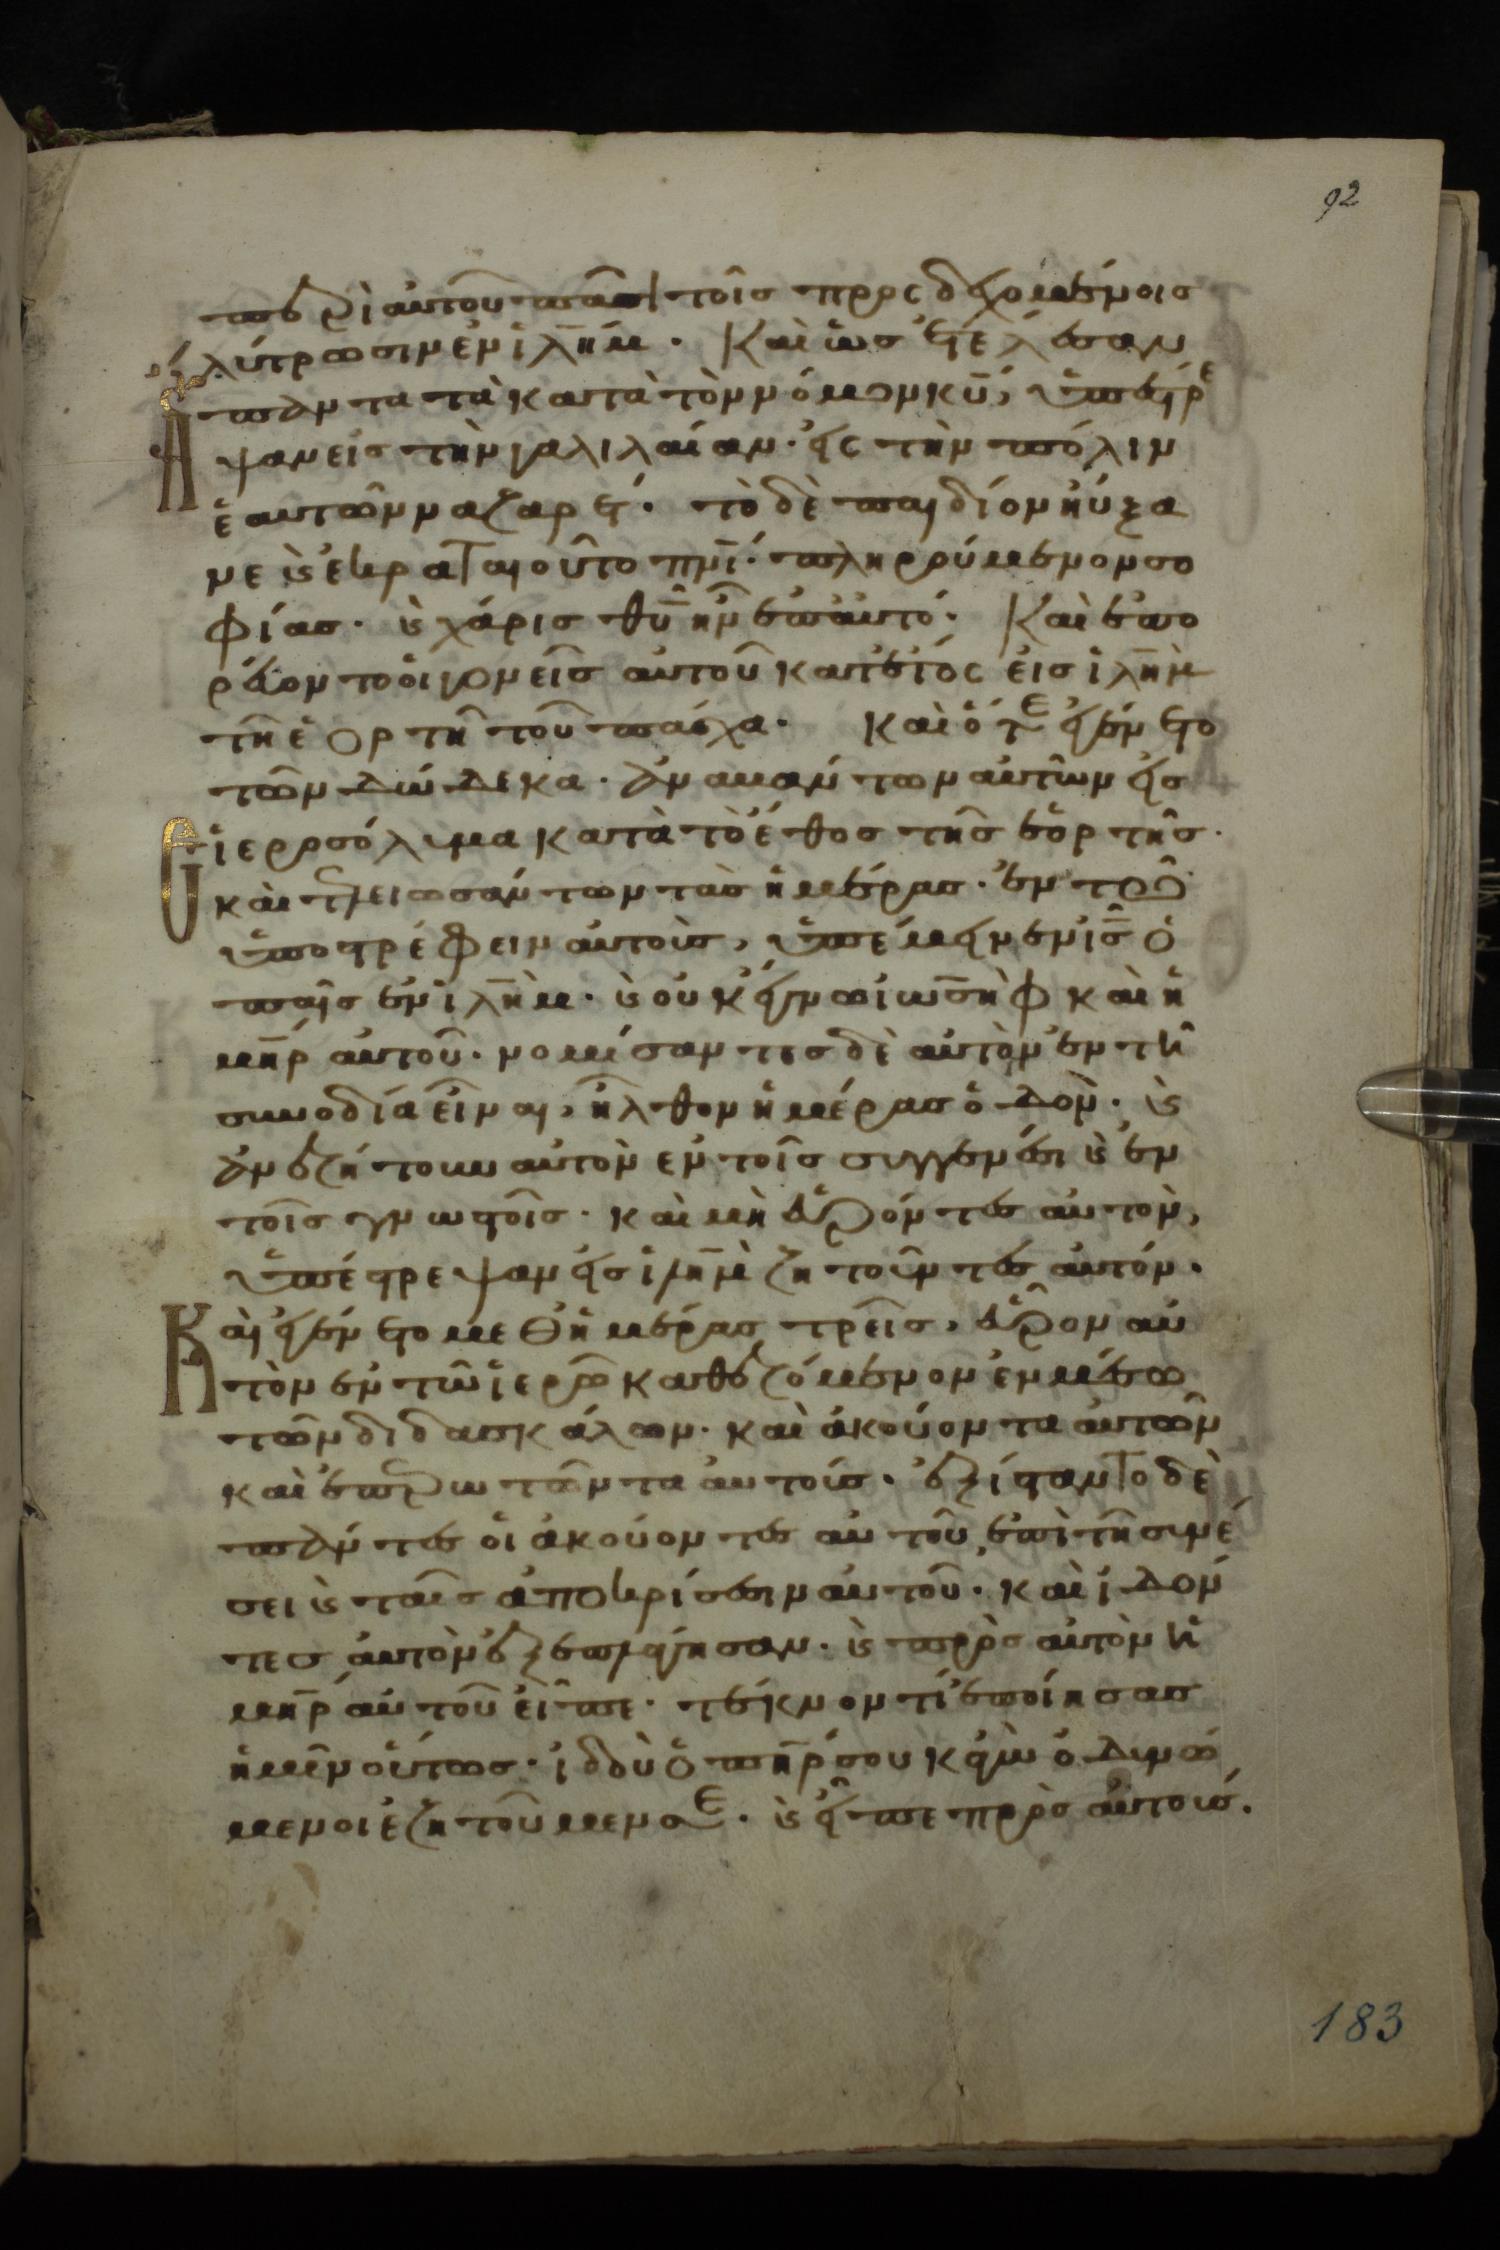 92
περὶ αὐτοῦ πᾶσι τοῖς προσδεχομένοις
λύτρωσιν ἐν ἰλῆμ. Καὶ ὡς ἐτέλεσαν
ἅπαντα τὰ κατὰ τὸν νόμον κῡ, ὑπέστρε
ψαν εἰς τὴν γαλιλαίαν· εἰς τὴν πόλιν
ἑαυτῶν ναζαρέτ. τὸ δὲ παιδίον ηὔξα
νε καὶ ἐκραταιοῦτο πνῑ· πληρούμενον σο
φίας· καὶ χάρις θῡ ἦν ἐπ αὐτό· Καὶ ἐπο
ρεύοντο οἱ γονεῖς αὐτοῦ κατέτος εἰς ἰλῆμ
τῆ ἑορτῆ τοῦ πάσχα. Καὶ ὅτε ἐγένετο
ἐτῶν δώδεκα· ἀναβάντων αὐτῶν εἰς
ἱεροσόλυμα κατὰ τὸ ἔθος τῆς ἑορτῆς·
καὶ τελειωσάντων τὰς ἡμέρας· ἐν τῶ
ὑποστρέφειν αὐτοὺς, ὑπέμεινεν ῑς ὁ
παῖς ἐν ἰλῆμ· καὶ οὐκ ἔγνω ἰωσὴφ καὶ ἡ
μηρ αὐτοῦ· νομίσαντες δὲ αὐτὸν ἐν τῆ
συνοδία εἶναι, ἦλθον ἡμέρας ὁδὸν· καὶ
ἀνεζήτουν αὐτὸν ἐν τοῖς συγγενέσι καὶ ἐν
τοῖς γνωστοῖς· καὶ μὴ εὑρόντες αὐτὸν,
ὑπέστρεψαν εἰς ἰλῆμ ζητοῦντες αὐτόν.
Καὶ ἐγένετο μεθ ἡμέρας τρεῖς, εὗρον αὐ
τὸν ἐν τῶ ἱερῶ καθεζόμενον ἐν μέσω
τῶν διδασκάλων· καὶ ἀκούοντα αὐτῶν
καὶ ἐπερωτῶντα αὐτούς· ἐξίσταντο δὲ
πάντες οἱ ἀκούοντες αὐτοῦ, ἐπὶ τῆ συνέ
σει καὶ ταῖς ἀποκρίσεσιν αὐτοῦ· καὶ ἰδόν
τες αὐτὸν ἐξεπλάγησαν· καὶ πρὸς αὐτὸν ἡ
μηρ αὐτοῦ εἶπε· τέκνον τί ἐποίησας
ἡμῖν οὕτως· ἰδοὺ ὁ πηρ σου κἀγὼ ὀδυνώ
μενοι ἐζητοῦμεν σε· καὶ εἶπε πρὸς αὐτούς.
183